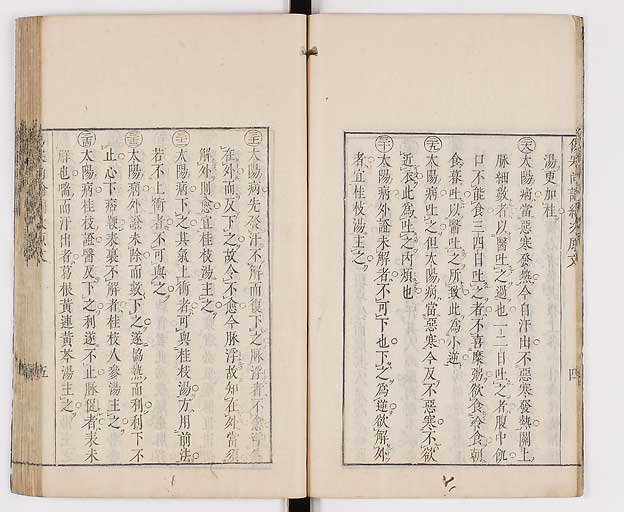 湯更加桂
十八太陽病當惡寒發熱今自汗出不惡寒發熱關上
脉細數者以醫吐之過也一二日吐之者腹中飢
口不能食三四日吐之者不喜糜粥欲食冷食朝
食暮吐以醫吐之所致此為小逆
十九太陽病吐之但太陽病當惡寒今反不惡寒不欲
近衣此為吐之內煩也
二十太陽病外證未解者不可下也下之為逆欲解外
者宜桂枝湯主之
四
二十一太陽病先發汗不解而復下之脉浮者不愈浮為
在外而反下之故令不愈今脉浮故知在外當須
解外則愈宜桂枝湯主之
二十二太陽病下之其氣上衝者可與桂枝湯方用前法
若不上衝者不可與之
二十三太陽病外證未除而數下之遂協熱而利利下不
止心下痞鞕表裏不解者桂枝人參湯主之
二十四太陽病桂枝證醫反下之利遂不止脉促者表未
解也喘而汗出者葛根黃連黃芩湯主之
五